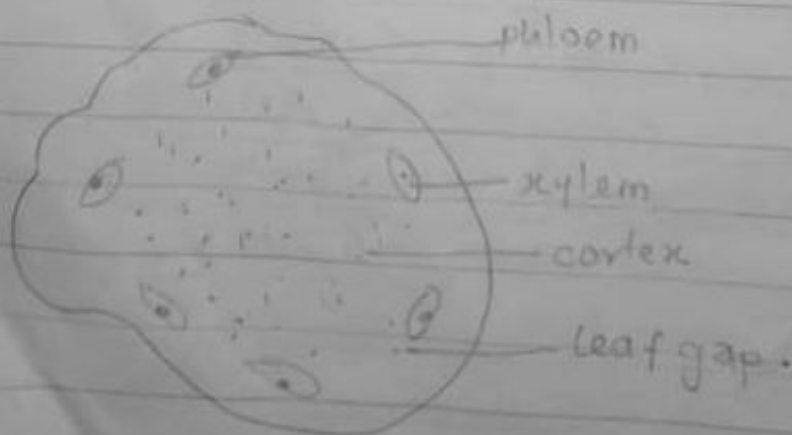 phloem
xylem
cortex
leaf gap.